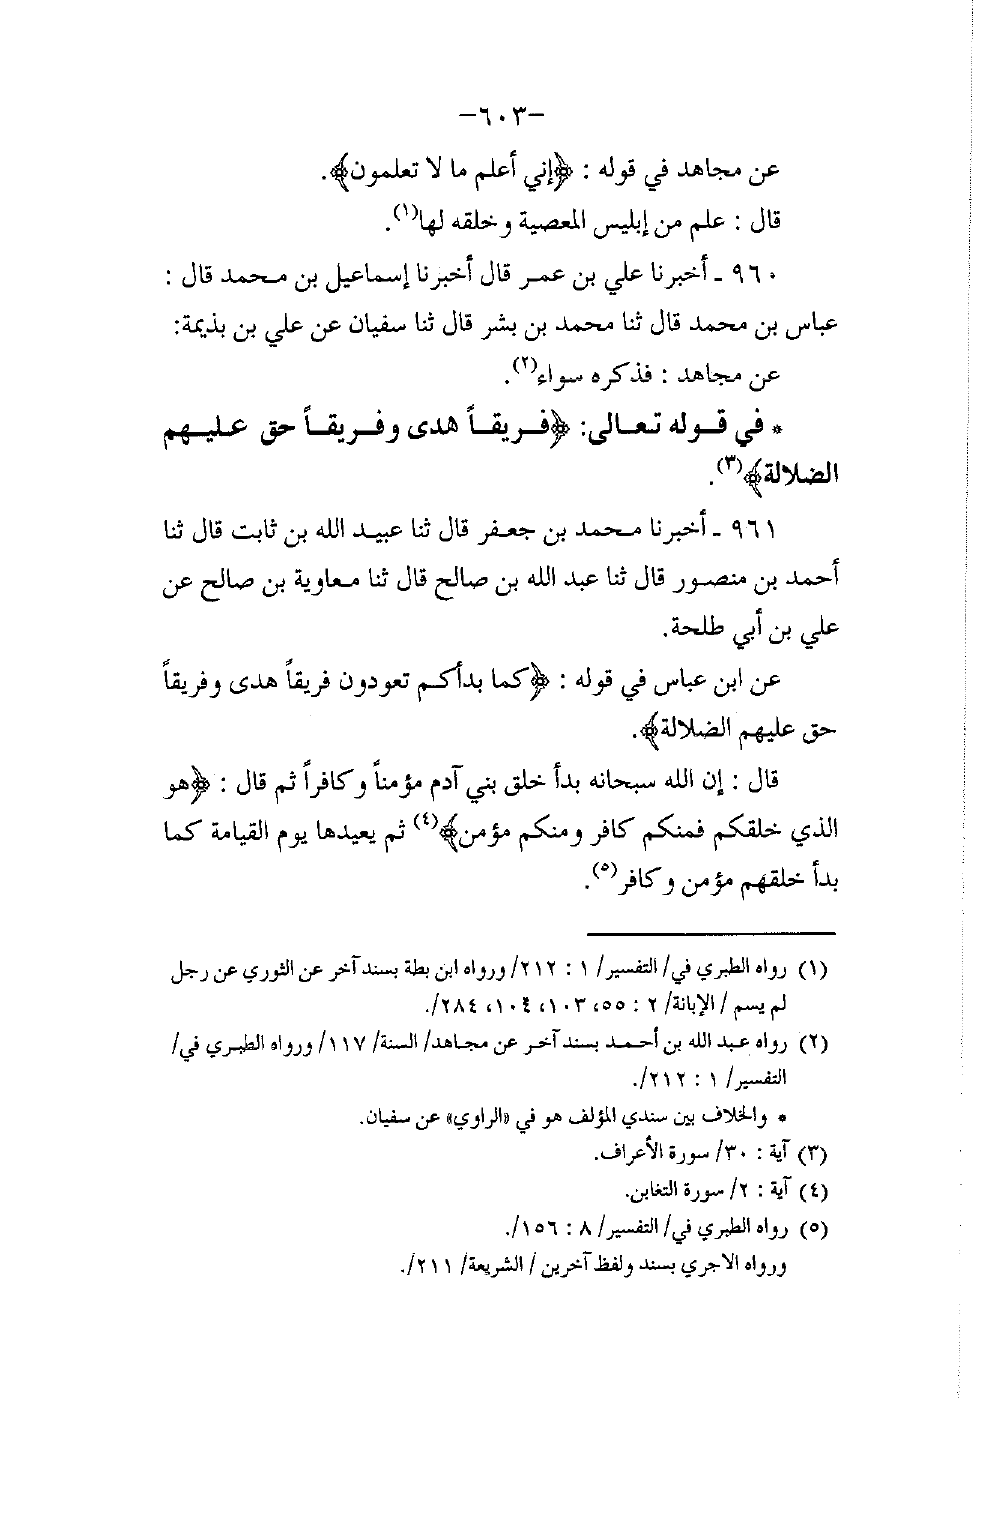 -٦٠٣-
عن مجاهد في قوله : ﴿إني أعلم ما لا تعلمون﴾.
قال : علم من إبليس المعصية وخلقه لها(١).
٩٦٠ ـ أخبرنا علي بن عمر قال أخبرنا إسماعيل بن محمد قال :
عباس بن محمد قال ثنا محمد بن بشر قال ثنا سفيان عن علي بن بذيمة:
عن مجاهد : فذكره سواء(٢).
* في قوله تعالى: ﴿فريقاً هدى وفريقاً حق عليهم
الضلالة﴾(٣).
٩٦١ ـ أخبرنا محمد بن جعفر قال ثنا عبيد الله بن ثابت قال ثنا
أحمد بن منصور قال ثنا عبد الله بن صالح قال ثنا معاوية بن صالح عن
علي بن أبي طلحة.
عن ابن عباس في قوله : ﴿كما بدأكم تعودون فريقاً هدى وفريقاً
حق عليهم الضلالة﴾.
قال : إن الله سبحانه بدأ خلق بني آدم مؤمناً وكافراً ثم قال : ﴿هو
الذي خلقكم فمنكم كافر ومنكم مؤمن﴾(٤) ثم يعيدها يوم القيامة كما
بدأ خلقهم مؤمن وكافر(٥).
(١) رواه الطبري في/ التفسير/ ١ : ٢١٢/ ورواه ابن بطة بسند آخر عن الثوري عن رجل
لم يسم / الإبانة/ ٢ : ٥٥، ١٠٣، ١٠٤، ٢٨٤/.
(٢) رواه عبد الله بن أحمد بسند آخر عن مجاهد/ السنة/ ١١٧/ ورواه الطبري في/
التفسير/ ١ : ٢١٢/.
* والخلاف بين سندي المؤلف هو في «الراوي» عن سفيان.
(٣) آية : ٣٠/ سورة الأعراف.
(٤) آية : ٢/ سورة التغابن.
(٥) رواه الطبري في/ التفسير/ ٨ : ١٥٦/.
ورواه الاجري بسند ولفظ آخرين / الشريعة/ ٢١١/.